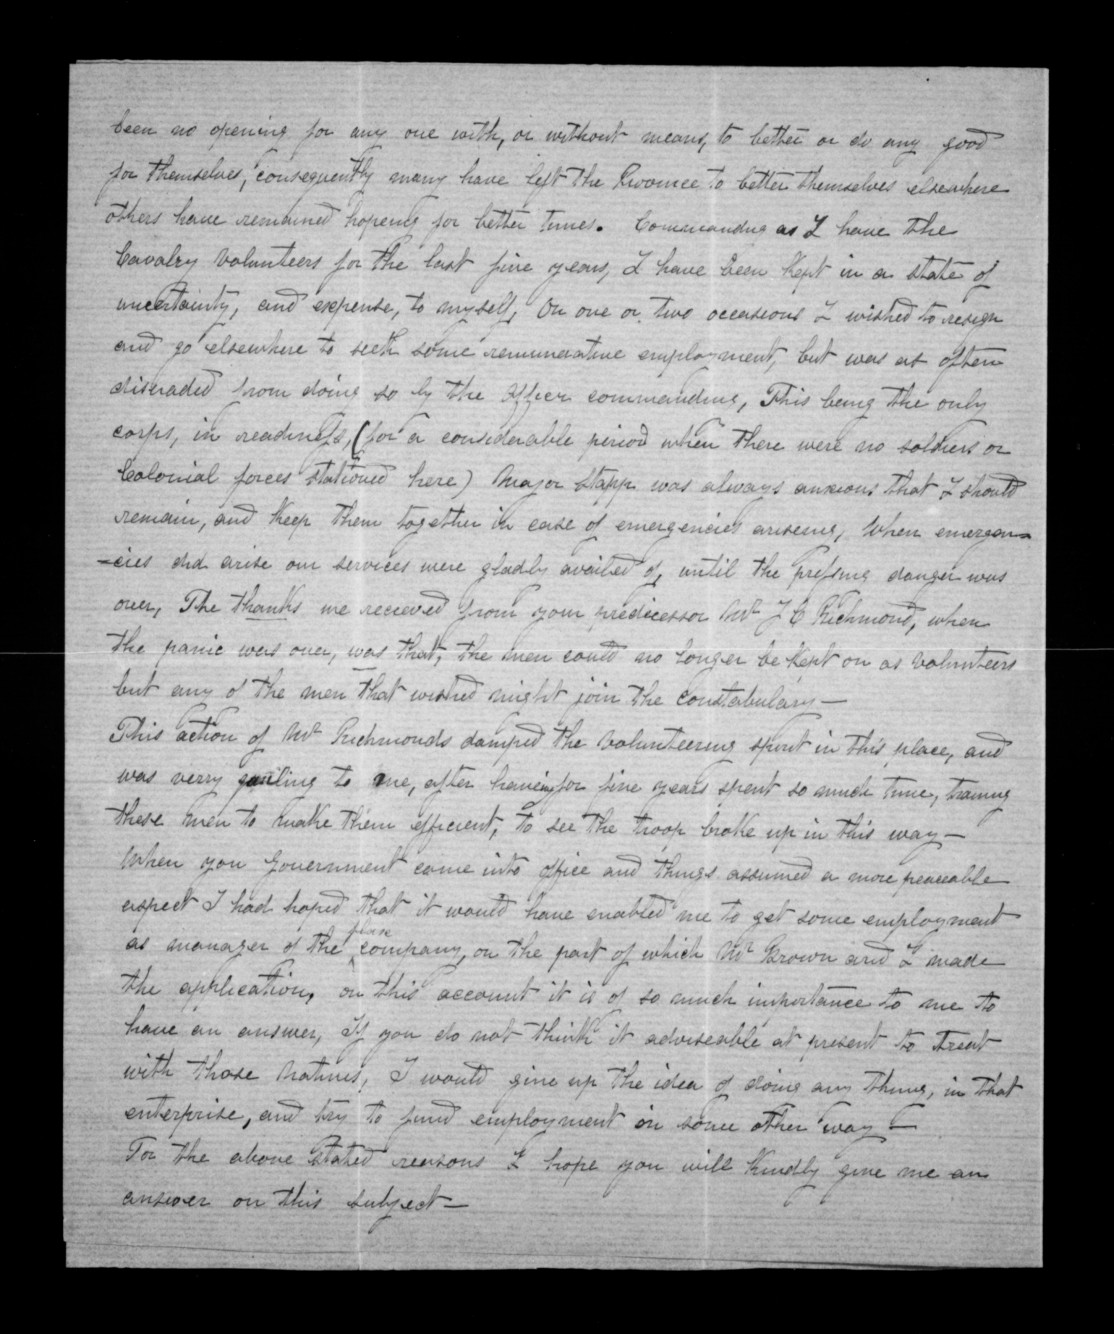 been no opening for any one with, or without means, to better or do any good
for themselves, consequently many have left the Province to better themselves elsewhere
others have remained hopeing for better times. Commanding as I have the
Cavalry Volunteers for the last five years, I have been Kept in a state of
uncertainty, and expense, to myself, On one or two occasions I wished to resign
and go elsewhere to seek some remunerative employment, but was as often
disuaded from doing so by the Officer commanding, This being the only
corps, in readiness, (for a considerable period when there were no soldiers or
Colonial forces stationed here) Major Stapp was always anxious that I should
remain, and Keep them together in case of emergencies ariseing, When emergen-
-cies did arise our services were gladly availed of, until the pressing danger was
over, The thanks we recieved from your predicessor Mr J C Richmond, when
the panic was over, was that, the men could no longer be Kept on as Volunteers
but any of the men that wished might join the Constabulary—
This action of Mr Richmonds damped the Volunteering spirit in this place, and
was verry galling to me, after having for five years spent so much time, training
these men to make them efficient, to see the troop broke up in this way—
When you Government came into office and things assumed a more peaceable
aspect I had hoped that it would have enabled me to get some employment
as manager of the flax company, on the part of which Mr Brown and I made
the application, on this account it is of so much importance to me to
have an answer, If you do not think it adviseable at present to treat
with those Natives, I would give up the idea of doing any thing, in that
enterprise, and try to find employment in some other way—
For the above Stated reasons I hope you will Kindly give me an
answer on this subject—